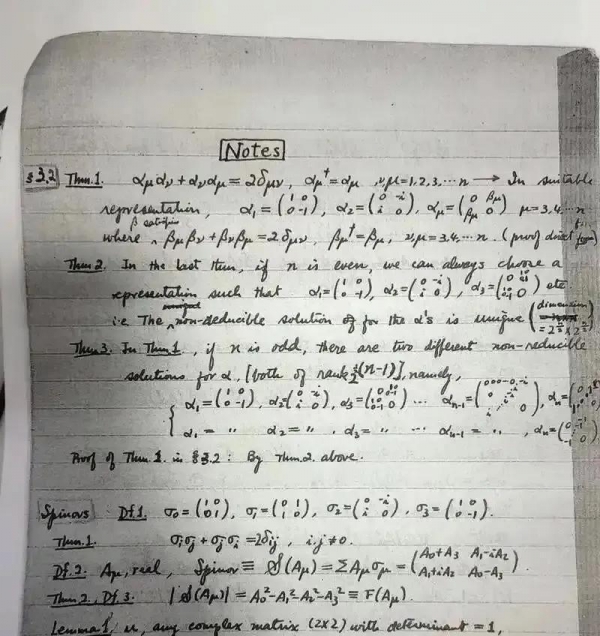 Notes
§3.2 Thm.1. αμαν + αναμ = 2δμν, αμ† = αμ, ν,μ=1,2,3,…n → In suitable
representation, α1 = (1 0 / 0 -1), α2 = (0 -i / i 0), αμ = (0 βμ / βμ 0) μ=3,4,…n
β satisfies
where βμβν + βνβμ = 2δμν, βμ† = βμ, ν,μ=3,4,…n. (proof direct from)
Thm 2. In the last thm, if n is even, we can always choose a
representation such that α1 = (1 0 / 0 -1), α2 = (0 -i / i 0), α3 = etc
i.e. The non-deducible solution of for the α's is unique (dimension
Thm 3. In Thm 1, if n is odd, there are two different non-reducible
solutions for α, [both of rank ½(n-1)], namely,
α1 = (1 0 / 0 -1), α2 = (0 -i / i 0), α3 = … αn-1 = , αn =
α1 = " α2 = " , α3 = " … αn-1 = " , αn =
Proof of Thm 2. in §3.2 : By Thm 2. above.
Spinors Df.1. σ0 = (1 0 / 0 1), σ1 = (0 1 / 1 0), σ2 = (0 -i / i 0), σ3 = (1 0 / 0 -1).
Thm.1. σiσj + σjσi = 2δij, i,j ≠ 0.
Df.2. Aμ, real, Spinor ≡ S(Aμ) = ΣAμσμ = (A0+A3 A1-iA2 / A1+iA2 A0-A3)
Thm 2, Df 3. |S(Aμ)| = A0² - A1² - A2² - A3² ≡ F(Aμ).
Lemma 1, u, any complex matrix (2x2) with determinant = 1,